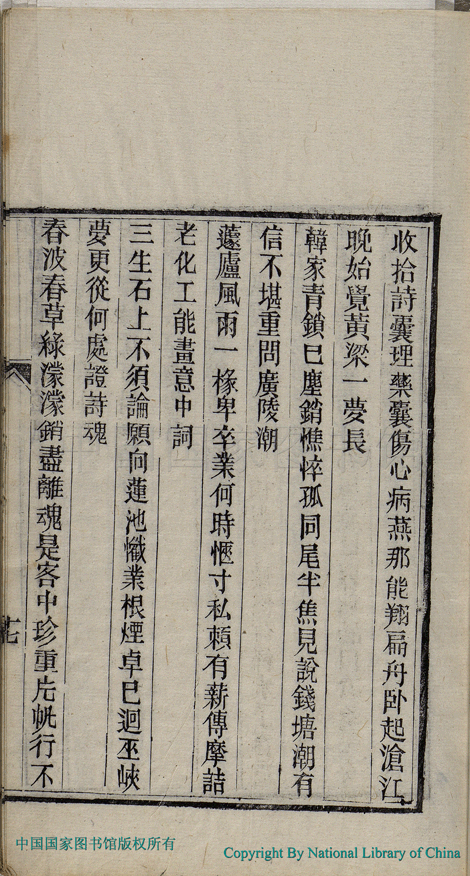 收拾詩囊理藥囊傷心病燕那能翔扁舟臥起滄江
晚始覺黃粱一夢長
韓家青鎖已塵銷憔悴孤同尾半焦見說錢塘潮有
信不堪重問廣陵潮
蘧廬風雨一椽卑卒業何時愜寸私頼有薪傳摩詰
老化工能畫意中詞
三生石上不須論願向蓮池懺業根煙卓已迴巫峽
夢更從何處證詩魂
春波春草綠濛濛銷盡離魂是客中珍重片帆行不
七
中国国家图书馆版权所有
Copyright By National Library of China